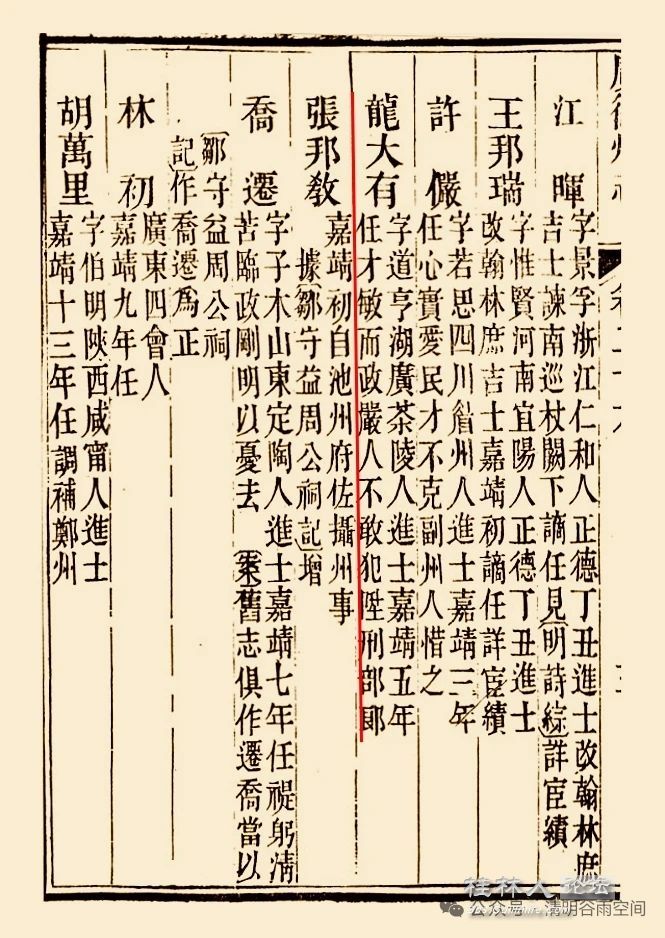 江暉
字景孚浙江仁和人正德丁丑進士改翰林庶
吉士諫南巡杖闕下謫任見明詩綜詳宦績
王邦瑞
字惟賢河南宜陽人正德丁丑進士
改翰林庶吉士嘉靖初謫任詳宦績
許儼
字若思四川眉州人進士嘉靖三年
任心實愛民才不克副州人惜之
龍大有
字道亨湖廣茶陵人進士嘉靖五年
任才敏而政嚴人不敢犯陞刑部郎
張邦教
嘉靖初自池州府佐攝州事
據鄒守益周公祠記增
喬遷
字子木山東定陶人進士嘉靖七年任禔躬淸
苦臨政剛明以憂去 案舊志俱作遷喬當以
鄒守益周公祠
記作喬遷爲正
林初
廣東四會人
嘉靖九年任
胡萬里
字伯明陝西咸甯人進士
嘉靖十三年任調補鄭州
桂林人论坛
公众号 · 清明谷雨空间